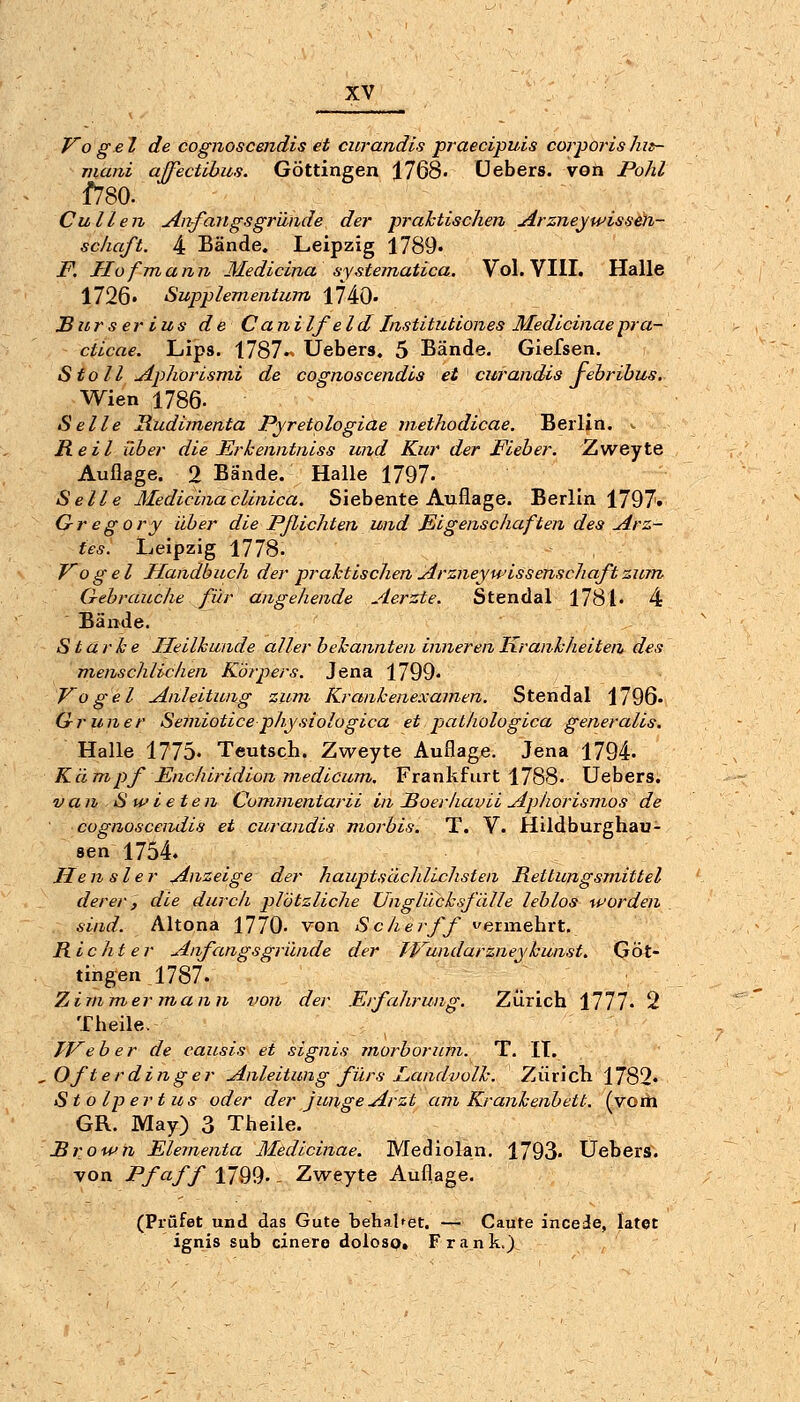 XV
Vogel de cognoscendis et curandis praecipuis corporis hu-
mani affectibus. Göttingen 1768. Uebers. von Pohl
1780.
Cullen Anfangsgründe der praktischen Arzneywissen-
schaft. 4 Bände. Leipzig 1789.
F. Hofmann Medicina systematica. Vol. VIII. Halle
1726. Supplementum 1740.
Burserius de Canilfeld Institutiones Medicinae pra-
cticae. Lips. 1787. Uebers. 5 Bände. Giefsen.
Stoll Aphorismi de cognoscendis et curandis febribus.
Wien 1786.
Selle Rudimenta Pyretologiae methodicae. Berlin.
Reil über die Erkenntniss und Kur der Fieber. Zweyte
Auflage. 2 Bände. Halle 1797.
Selle Medicina clinica. Siebente Auflage. Berlin 1797.
Gregory über die Pflichten und Eigenschaften des Arz-
tes. Leipzig 1778.
Vogel Handbuch der praktischen Arzneywissenschaft zum
Gebrauche für angehende Aerzte. Stendal 1781. 4
Bände.
Starke Heilkunde aller bekannten inneren Krankheiten des
menschlichen Körpers. Jena 1799.
Vogel Anleitung zum Krankenexamen. Stendal 1796.
Gruner Semiotice physiologica et pathologica generalis.
Halle 1775. Teutsch. Zweyte Auflage. Jena 1794.
Kämpf Enchiridion medicum. Frankfurt 1788. Uebers.
van Swieten Commentarii in Boerhavii Aphorismos de
cognoscendis et curandis morbis. T. V. Hildburghau-
sen 1754.
Hensler Anzeige der hauptsächlichsten Rettungsmittel
derer, die durch plötzliche Unglücksfälle leblos worden
sind. Altona 1770. von Scherff vermehrt.
Richter Anfangsgründe der Wundarzneykunst. Göt-
tingen 1787.
Zimmermann von der Erfahrung. Zürich 1777. 2
Theile.
Weber de causis et signis morborum. T. II.
Ofterdinger Anleitung fürs Landvolk. Zürich 1782.
Stolpertus oder der junge Arzt am Krankenbett. (vom
GR. May) 3 Theile.
Brown Elementa Medicinae. Mediolan. 1793. Uebers.
von Pfaff 1799. Zweyte Auflage.
(Prüfet und das Gute behaltet. — Caute incede, latet
ignis sub cinere doloso. Frank.)